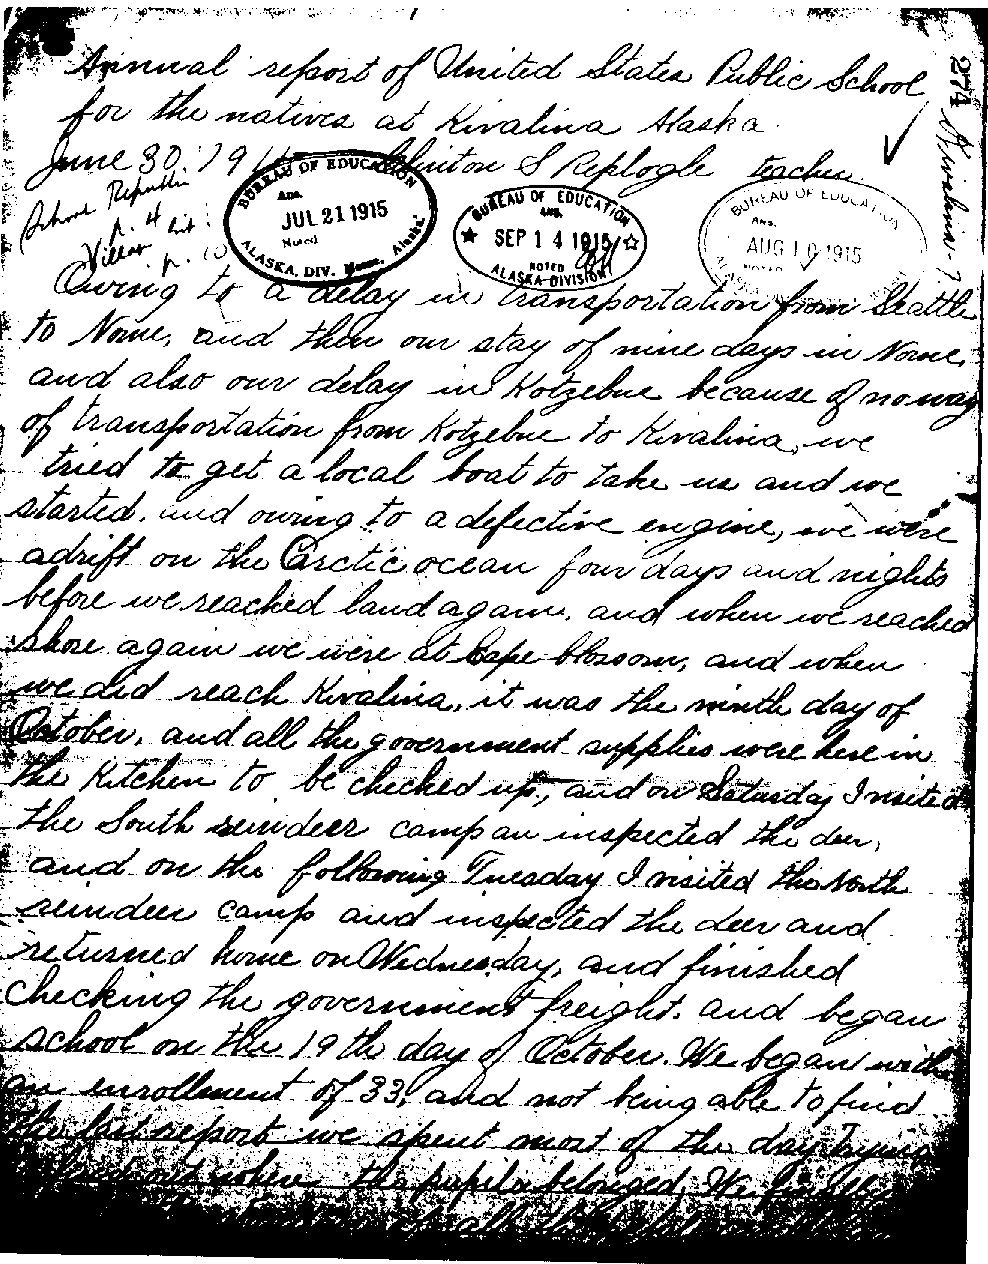 Annual report of United States Public School
for the natives at Kivalina Alaska.
June 30. 191 Clinton S Replogle teacher.
274 Kivalina-7
School Republic
p. 4
Villar
p. 10
BUREAU OF EDUCATION
Ans.
JUL 21 1915
Noted
ALASKA. DIV. Nome, Alaska.
BUREAU OF EDUCATION
ANS.
SEP 14 1915
NOTED
ALASKA DIVISION
BUREAU OF EDUCATION
ANS.
AUG 10 1915
NOTED
Owing to a delay in transportation from Seattle
to Nome, and then our stay of nine days in Nome,
and also our delay in Kotzebue because of no way
of transportation from Kotzebue to Kivalina, we
tried to get a local boat to take us and we
started, and owing to a defective engine, we were
adrift on the Arctic ocean four days and nights
before we reached land again, and when we reached
shore again we were at Cape blossom, and when
we did reach Kivalina, it was the ninth day of
October, and all the government supplies were here in
the Kitchen to be checked up, and on Saturday I visited
the South reindeer camp an inspected the deer,
and on the following Tuesday I visited the North
reindeer camp and inspected the deer and
returned home on Wednesday, and finished
checking the government freight. and began
school on the 19th day of October. We began with
an enrollment of 33, and not being able to find
the last report we spent most of the day trying
where the pupils belonged. We